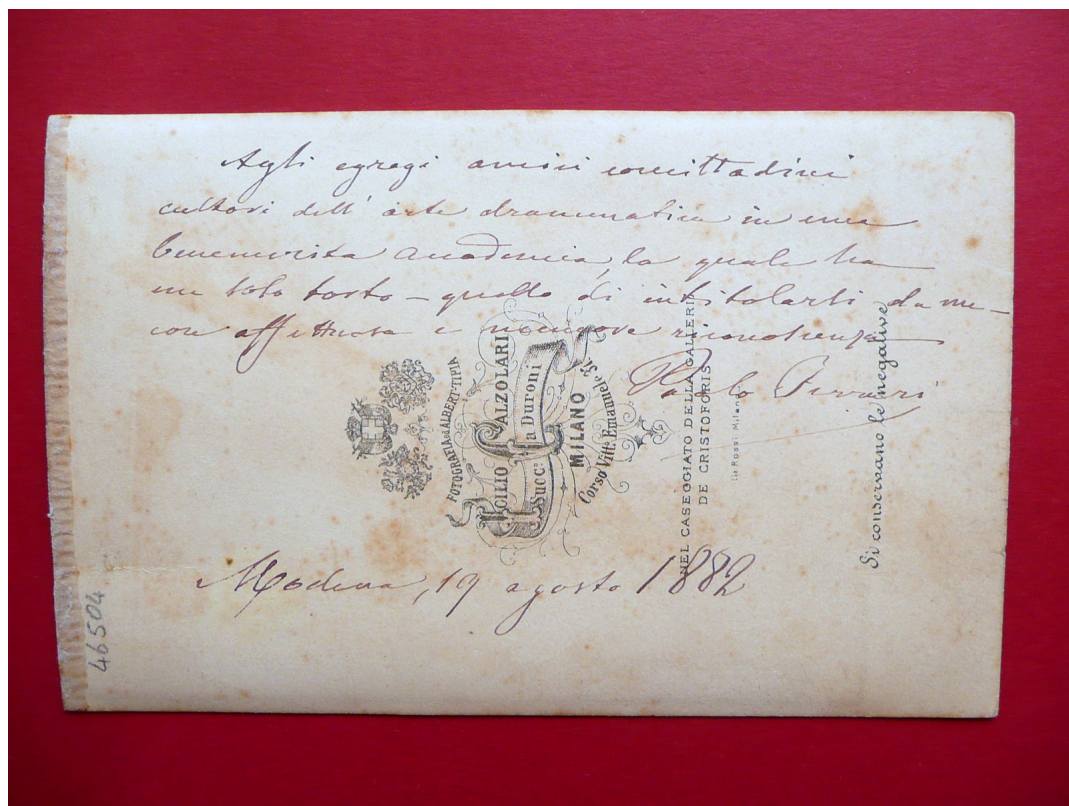 Agli egregi amici concittadini
cultori dell' arte drammatica in una
benemerita accademia, la quale ha
un solo torto – quello di intitolarsi da me –
con affettuosa e riconoscenza
Paolo Ferrari
Modena, 19 agosto 1882
46504
FOTOGRAFIA ed ALBERT-TIPIA
ICILIO CALZOLARI
Succ.e a Duroni
MILANO
Corso Vitt.o Emanuele 31.
NEL CASEGGIATO DELLA GALLERIA
DE CRISTOFORIS
Lit. Rossi Milano
Si conservano le negative